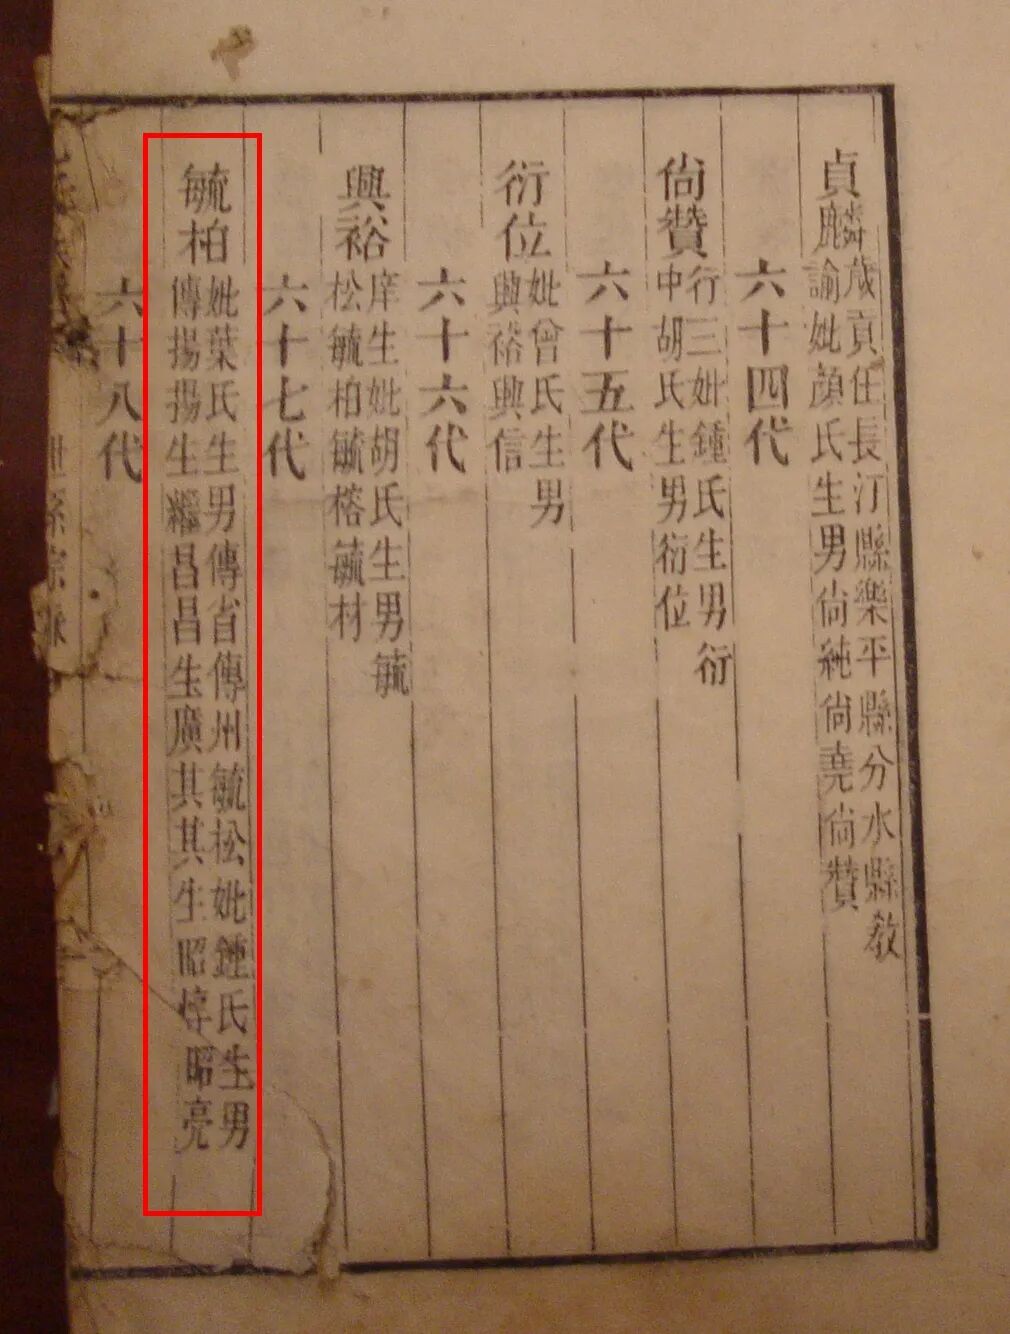 貞麟
歲貢任長汀縣樂平縣分水縣教
諭妣顏氏生男尙純尙堯尙贊
六十四代
尙贊
行三妣鍾氏生男衍
中胡氏生男衍位
六十五代
衍位
妣曾氏生男
興裕興信
六十六代
興裕
庠生妣胡氏生男毓
松毓柏毓榕毓材
六十七代
毓柏
妣葉氏生男傳省傳州毓松妣鍾氏生男
傳揚揚生繼昌昌生廣其其生昭惇昭亮
六十八代
世系宗